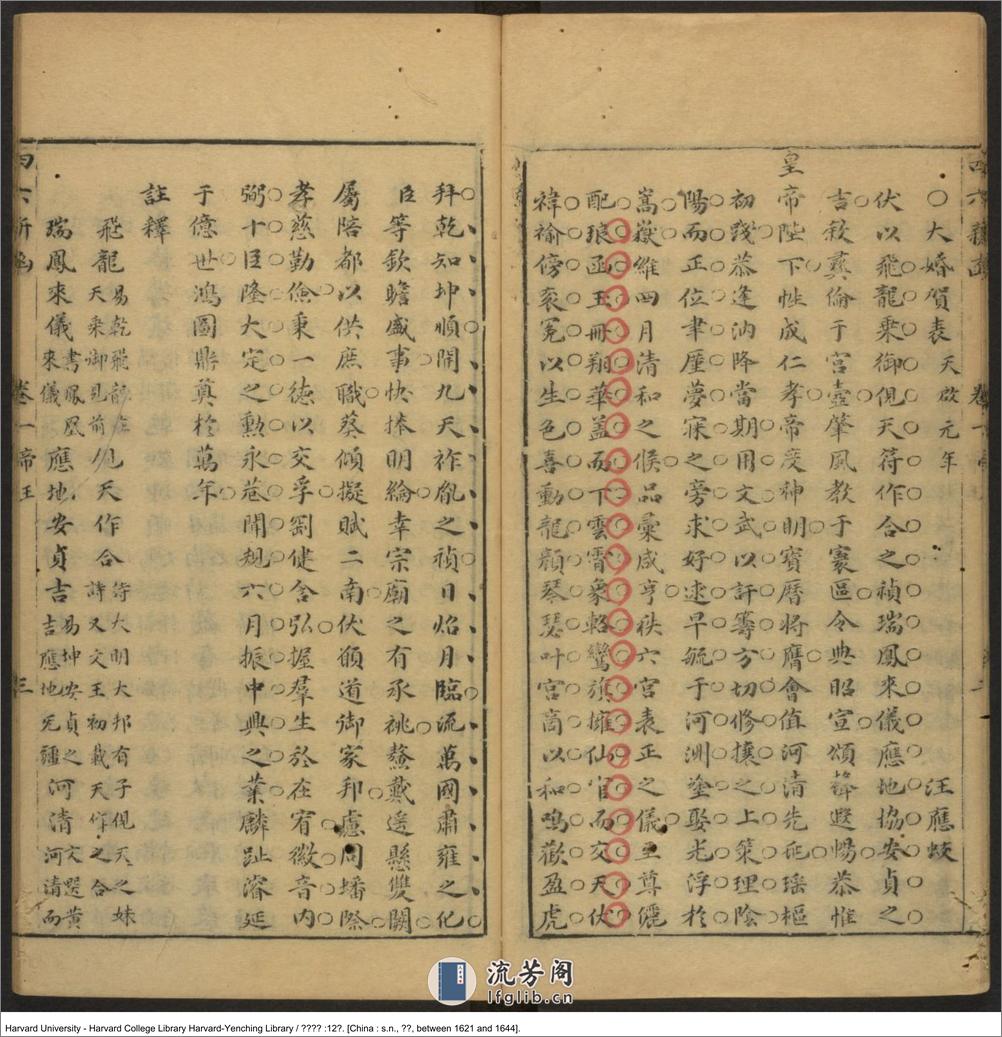 大婚賀表 天啟元年 汪應蛟
伏以飛龍乘御俔天符作合之禎瑞鳳來儀應地協安貞之
吉敘彞倫于宮壼肇風教于寰區令典昭宣頌聲遐暢恭惟
皇帝陛下性成仁孝帝度神明寶曆將膺會值河清先祉瑶樞
初踐恭逢汭降當期用文武以訏籌方切修攘之上策理陰
陽而正位聿厪夢寐之旁求好逑早毓于河洲塗娶光浮於
嵩嶽維四月清和之候品彙咸亨秩六宮表正之儀至尊儷
配琅函玉冊翔華蓋而下雲霄象輅鸞旗擁仙官而交天伏
褘褕傍衮冕以生色喜動龍顏琴瑟叶宮商以和鳴歡盈虎
拜乾知坤順開九天祚胤之禎日焰月臨流萬國肅雍之化
臣等欽瞻盛事快捧明綸幸宗廟之有承祧鰲戴遥懸雙闕
屬陪都以供庶職葵傾擬賦二南伏願道御家邦慮周墦際
孝慈勤儉秉一德以交孚劉健含弘握羣生於在宥徽音内
弼十臣隆大定之勲永巷開規六月振中興之業麟趾濬延
于億世鴻圖鼎奠於萬年
註釋
飛龍 易乾飛龍在天乘御見前 俔天作合 詩大明大邦有子俔天之妹詩又文王初載天作之合
瑞鳳來儀 書鳳凰來儀 應地安貞吉 易坤安貞之吉應地无疆 河清 文選黄河清而
四六新函 卷一 帝王 三
流芳阁
lfglib.cn
Harvard University - Harvard College Library Harvard-Yenching Library / ???? :12?. [China : s.n., ??, between 1621 and 1644].